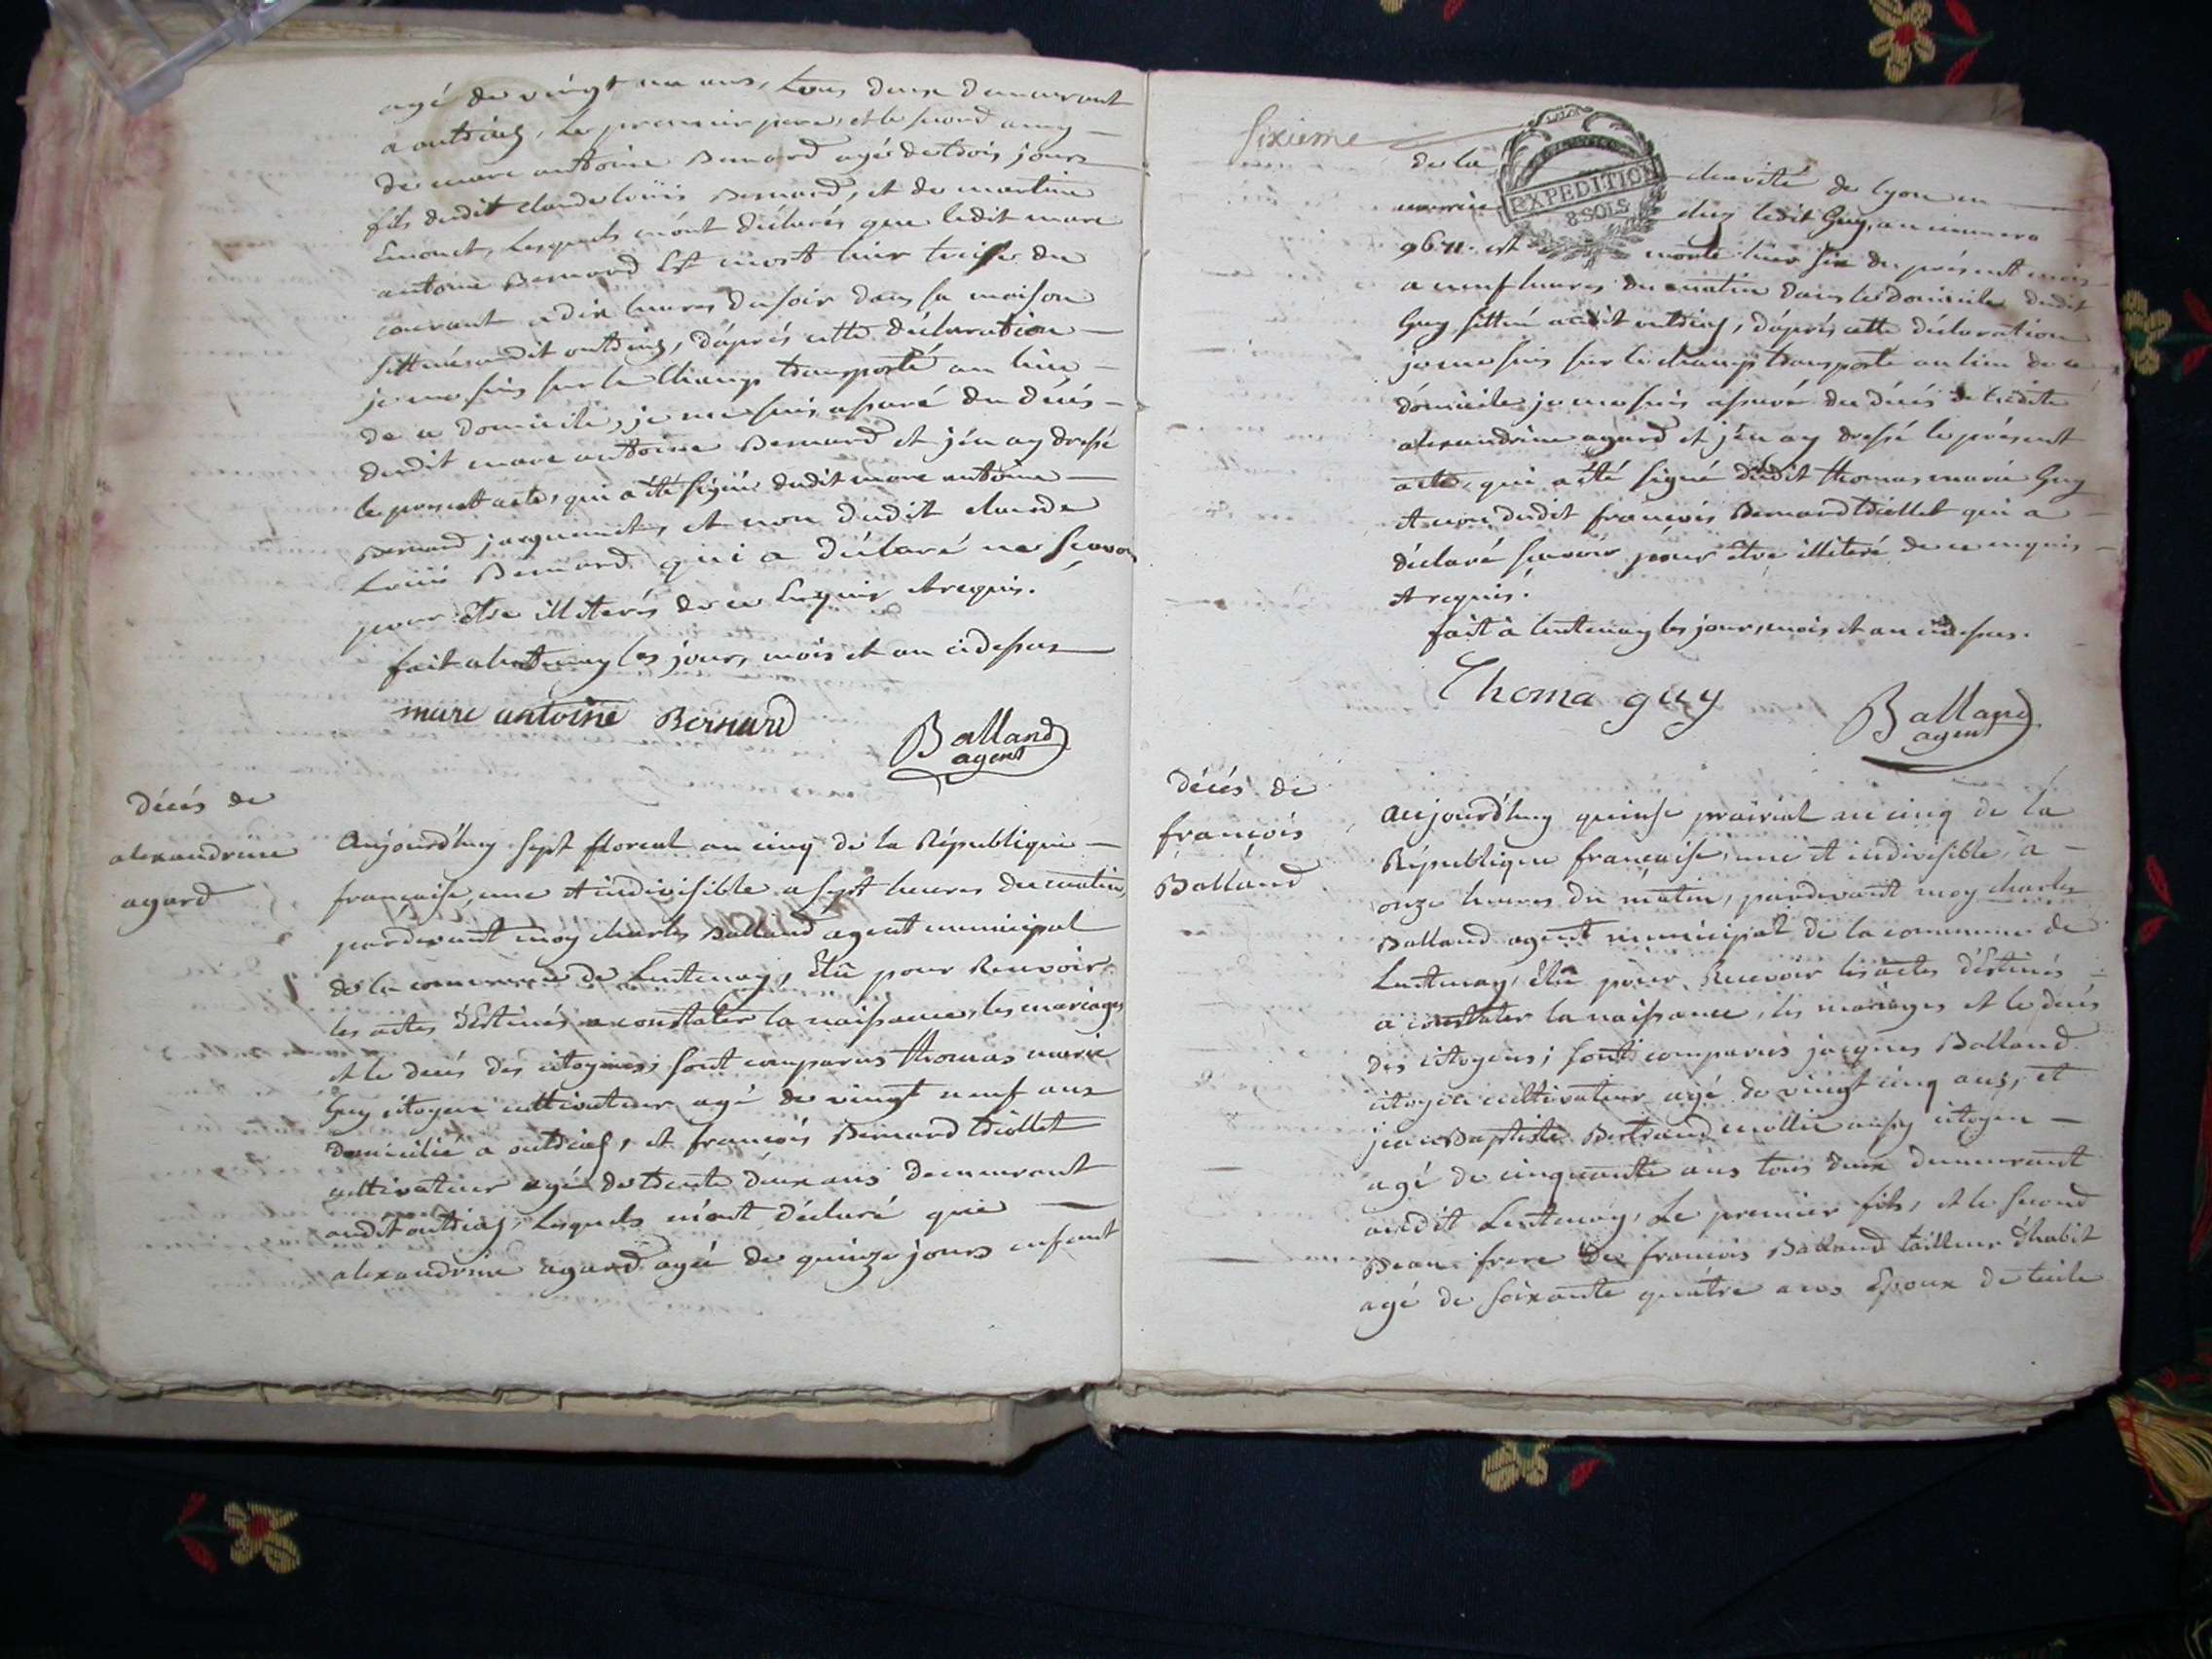 agé de vingt un ans, tous deux demeurant
a outriaz, le premier pere, et le second
de marc antoine Bernard agé de trois jours
fils dudit claude louis Bernard, et de martine
Emonet, lesquels m'ont déclarés que ledit marc
antoine Bernard est mort hier treise du
courant a dix heures du soir dans sa maison
sittué audit outriaz, d'aprés cette déclaration
je me suis sur le champ transporté au lieu
de ce domicile, je me suis assuré du décés
dudit marc antoine Bernard et j'en ay dressé
le present acte, qui a été signé dudit marc antoine
Bernard jacquemet, et non dudit claude
Louis Bernard qui a déclaré ne scavoir
pour etre illiterés de ce Enquis et requis.
fait a lentenay les jour, mois et an cidessus
marc antoine Bernard
Balland
agent
Décés de
alexandrine
agard
Aujourd'huy sept floreal an cinq de la République
française, une et indivisible a sept heures du matin,
pardevant moy charles Balland agent municipal
de la commune de Lentenay, Elû pour Recevoir
les actes déstinés a constater la naissance, les mariages
et le decés des citoyens, sont comparus thomas marie
Guy citoyen cultivateur agé de vingt neuf ans
domicilié a outriaz, et francois Bernard triollet
cultivateur agé de trente deux ans demeurant
audit outriaz, lesquels m'ont déclaré que
alexandrine agard agée de quinze jours enfant
sixieme
EXPEDITION
8 SOLS
de la charité de lyon en
nourrice chez ledit Guy, au numero
9671. est morte hier six du présent mois
a neuf heures du matin dans le domicile dudit
Guy sittué audit outriaz, d'aprés cette déclaration
je me suis sur le champ transporté au lieu de ce
domicile je me suis assuré du décés de ladite
alexandrine agard et j'en ay dressé le présent
acte, qui a été signé dudit thomas marie Guy
et non dudit françois Bernard triollet qui a
déclaré scavoir pour etre illiteré de ce enquis
et requis.
fait à lentenay les jour, mois et an cidessus.
Thoma guy
Balland
agent
Décés de
francois
Balland
aujourd'huy quinse prairial an cinq de la
République francaise, une et indivisible, à
onze heures du matin, pardevant moy charles
Balland agent municipal de la commune de
Lentenay, Elû pour Recevoir les actes déstinés
a constater la naissance, les mariages et le decés
des citoyens; sont comparus jacques Balland
citoyen cultivateur agé de vingt cinq ans, et
jean Baptiste Bertrand aussy citoyen
agé de cinquante ans tous deux demeurant
audit Lentenay, Le premier fils, et le second
Beau-frere de francois Balland tailleur d'habit
agé de soixante quatre ans Epoux de